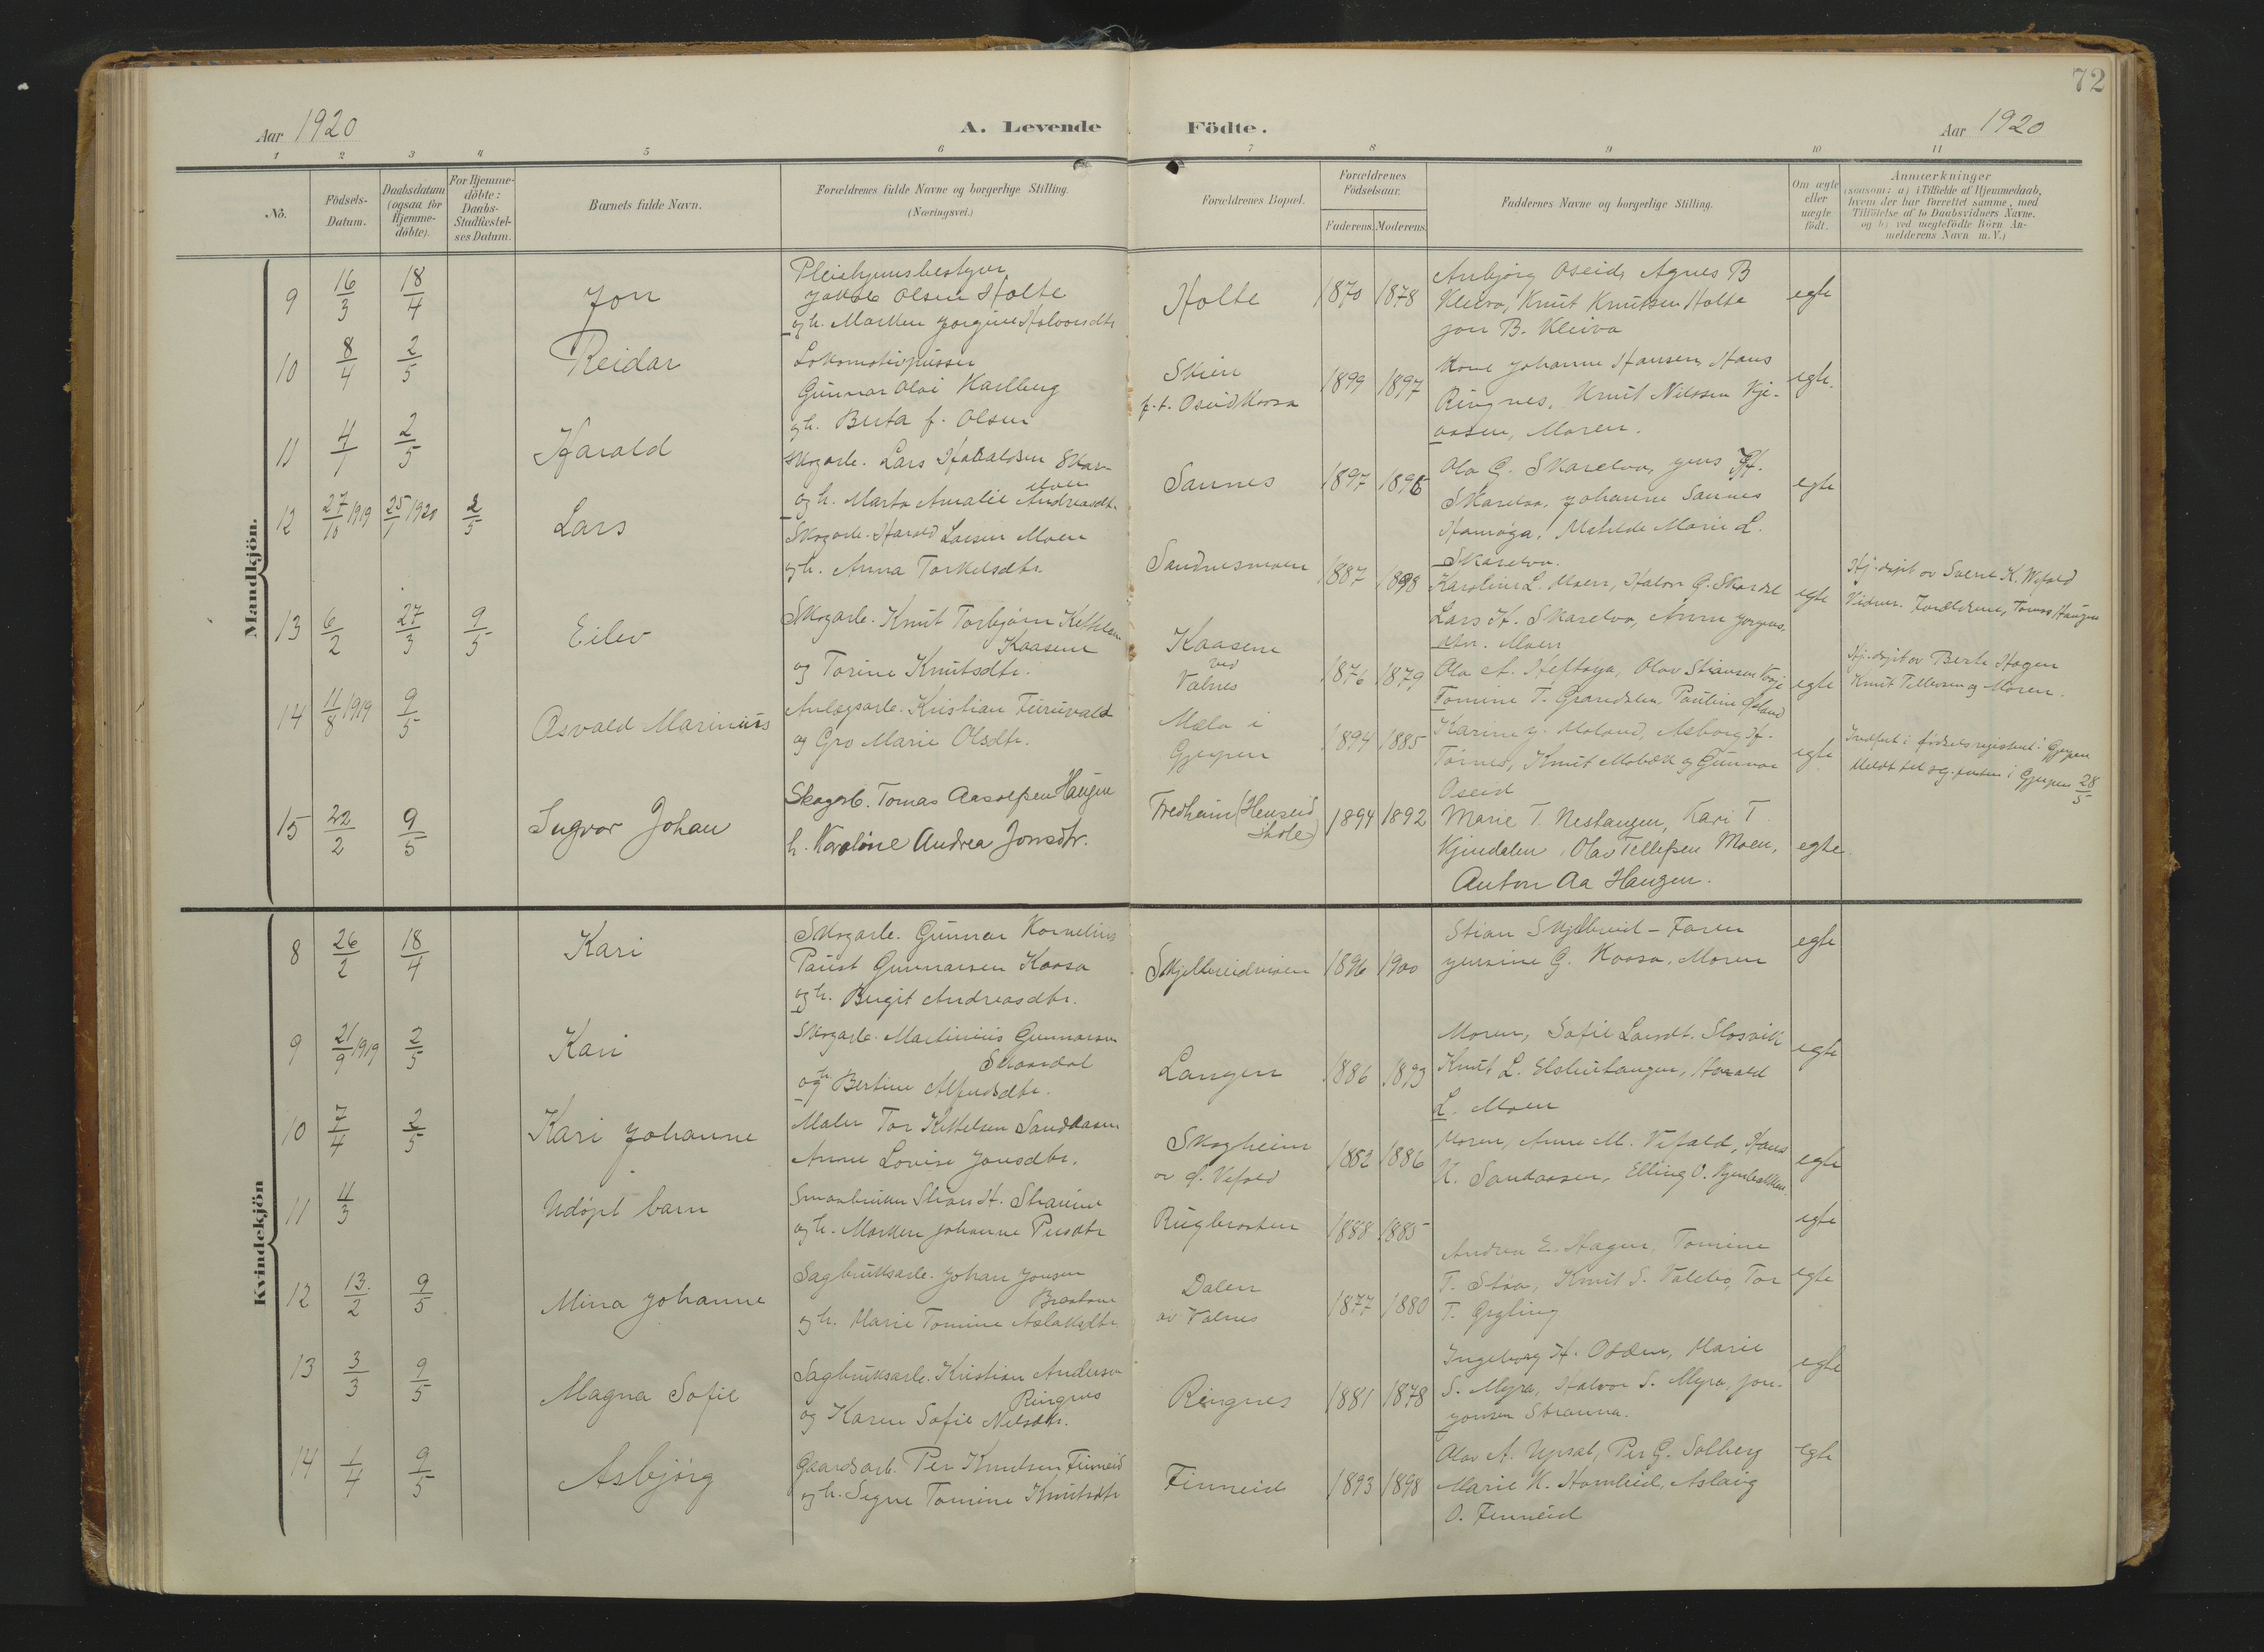 72
Aar 1920
A. Levende Födte.
Aar 1920
1 2 3 4 5 6 7 8 9 10 11
No.
Födsels-
Datum.
Daabsdatum
(ogsaa for
Hjemme-
döbte).
For Hjemme-
döbte:
Daabs-
Stadfæstel-
ses Datum.
Barnets fulde Navn.
Forældrenes fulde Navne og borgerlige Stilling.
(Næringsvei.)
Forældrenes Bopæl.
Forældrenes
Födselsaar.
Faderens. Moderens.
Faddernes Navne og borgerlige Stilling.
Om ægte
eller
uægte
födt.
Anmærkninger
(saasom: a) i Tilfælde af Hjemmedaab,
hvem der har forrettet samme, med
Tilföielse af to Daabsvidners Navne.
og b) ved uægtefödte Börn An-
melderens Navn m. V.)
Mandkjön.
9 16/3 18/4 Jon
Pleiehjemsbestyrer
Olsen Holte
og h. Marken Jorgine Halvorsdtr
Holte 1870 1878
Anbjörg Oseid, Agnes B
Kleiva, Knut Knutsen Holte
Jon B. Kleiva
egte
10 8/4 2/5 Reidar
Lokomotivpusser
Gunnar Olai Karlberg
og h. Berta f. Olsen
Skien
p.t. Oseid Kaasa
1899 1897
Kone Johanne Hansen, Hans
Ringnes, Knut Nilssen Kje-
aasen, Moren.
egte.
11 4/1 2/5 Harald
Skogarb. Lars Haraldsen Skar-
elven
og h. Marta Amalie Andreasdtr.
Sannes 1897 1896
Ola G. Skarelva, Jens H.
Skarelva, Johanne Sannes
Hamöga, Matilde Marie L.
Skarelva.
egte
12 27/10 1919 25/1 1920 2/5 Lars
Skogarb. Harald Larsen Moen
og h. Anna Torkelsdtr.
Sandnesmoen 1887 1898
Karoline L. Moen, Halvor G. Skardal
Lars H. Skarelva, Anne Jörgens-
dtr. Moen
egte
Hj.döpt av Sverre K. Vefald
Vidner. Forældrene, Tomas Haugen
13 6/2 27/3 9/5 Eilev
Skogarb. Knut Torbjörn Kittelsen
Kaasene
og Torine Knutsdtr.
Kaasene
ved
Valnes
1876 1879
Ola A. Heftöya, Olav Stiansen
Tomine T. Grandalen, Pauline
egte
Hj.döpt av Berte Hagen
Knut Tellevsen og Moren.
14 11/8 1919 9/5 Osvald Marinius
Anlægsarb. Kristian Furuvald
og Gro Marie Olsdtr.
Mæla i
Gjerpen
1894 1885
Karin G. Moland, Asborg H.
Törnes, Knut Mobæk og Gunnar
Oseid
egte
Indfört i födselsregisteret i Gjerpen
Meldt til sognepresten i Gjerpen 28/5
15 22/2 9/5 Ingvar Johan
Skogarb. Tomas Aasolfsen Haugen
h. Karoline Andrea Jonsdtr.
Fredheim (Henseid
skole)
1894 1892
Marie T. Nestangen, Kari T.
Kjendalen, Olav Tellefsen Moen,
Anton Aa Haugen.
egte.
Kvindekjön
8 26/2 18/4 Kari
Skogarb. Gunnar Kornelius
Paust Gunnarsen Kaasa
og h. Birgit Andreasdtr.
Skjelbreidmoen 1896 1900
Stian Skjelbreid - Faren
Jensine G. Kaasa, Moren
egte
9 21/9 1919 2/5 Kari
Skogarb. Martinius Gunnarsen
Skaardal
og h. Bertine Alfredsdtr.
Langen 1886 1893
Moren, Sofie Larsdt. Slosvik
Knut L. Elshustangen, Harald
L. Moen
egte
10 7/4 2/5 Kari Johanne
Maler Tor Kittelsen Sandaasen
Anne Lovise Jonsdtr.
Skogheim
av d. Vefald
1882 1886
Moren, Anne M. Vefald, Hans
K. Sandaasen, Elling O. Kjenbakken.
egte
11 4/3 Udöpt barn
Smaabruker Stian H. Straume
og h. Marken Johanne Persdtr
Rugbraaten 1888 1885
egte
12 13/2 9/5 Mina Johanne
Sagbruksarb. Johan Jonsen
Braatene
og h. Marie Tomine Aslaksdtr.
Dalen
av Valnes
1877 1880
Andrea E. Hagen, Tomine
T. Støa, Knut S. Valebö, Tor
T. Grgling
egte
13 3/3 9/5 Magna Sofie
Sagbruksarb. Kristian Andersen
Ringnes
og Karen Sofie Nilsdtr.
Ringnes 1881 1878
Ingeborg H. Odden, Marie
S. Myra, Halvor S. Myra, Jon
Jonsen Stranna.
egte
14 1/4 9/5 Asbjörg
Gaardsarb. Per Knudsen Finneid
og h. Signe Tomine Knutsdtr
Finneid 1893 1898
Olav A. Upsal, Per G. Solberg
Marie K. Homleid, Aslaug
O. Finneid
egte